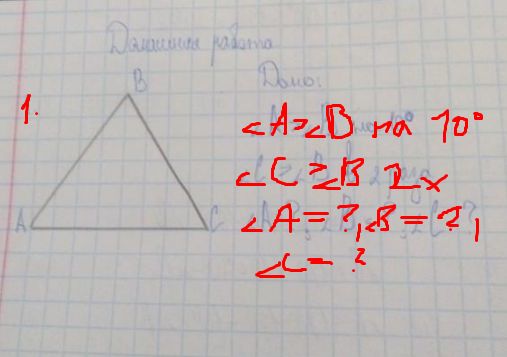 Домашняя работа
B
Дано:
1.
∠A>∠B на 10°
∠C>∠B 2x
∠A=?,∠B=?,
A C
∠C=?